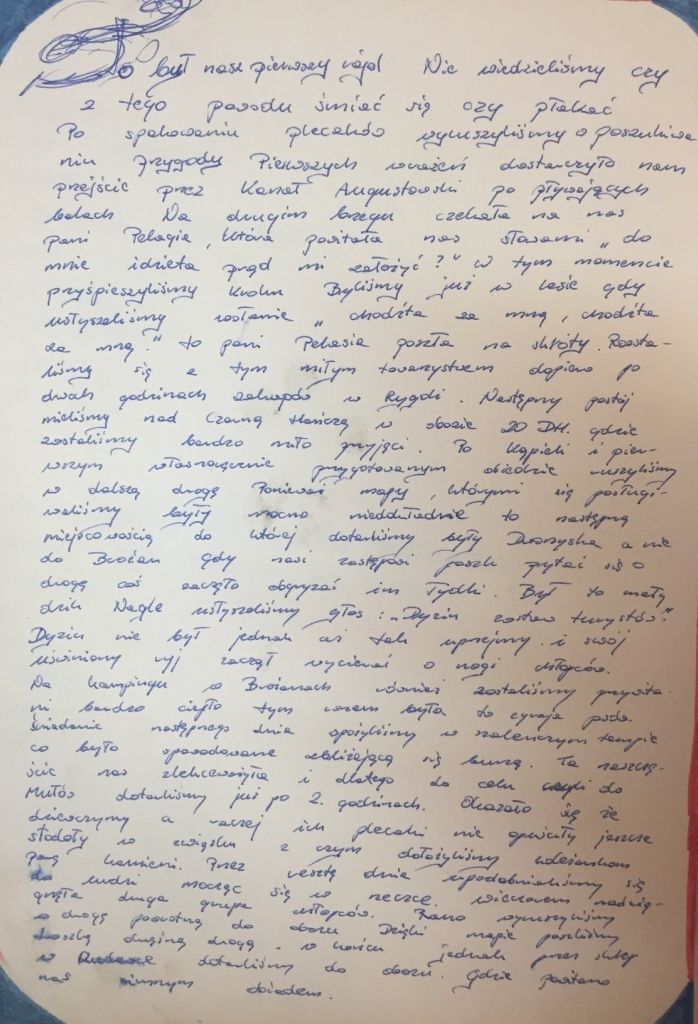 To był nasz pierwszy rajd Nie wiedzieliśmy czy
z tego powodu śmiać się czy płakać
Po spakowaniu plecaków wyruszyliśmy w poszukiwa
niu przygody Pierwszych wrażeń dostarczyło nam
przejście przez Kanał Augustowski po pływających
balach Na drugim brzegu czekała na nas
pani Pelagia, która powitała nas słowami „do
mnie idzieta prąd mi założyć?" W tym momencie
przyśpieszyliśmy kroku Byliśmy już w lesie gdy
usłyszeliśmy wołanie „chodźta za mną, chodźta
za mną." to pani Pelasia poszła na skróty. Rozsta-
liśmy się z tym miłym towarzystwem dopiero po
dwóch godzinach zakupów w Rygoli. Następny postój
mieliśmy nad Czarną Hańczą w obozie 20 DH. gdzie
zostaliśmy bardzo miło przyjęci. Po kąpieli i pier-
wszym własnoręcznie przygotowanym obiedzie ruszyliśmy
w dalszą drogę Ponieważ mapy, którymi się posługi-
waliśmy były mocno niedokładnie to następną
miejscowością do której dotarliśmy były Dworczysko a nie
do Brożan gdy nasi zastępowi poszli pytać się o
drogę coś zaczęło obgryzać im łydki. Był to mały
dzik Nagle usłyszeliśmy głos: „Dyzin zostaw turystów."
Dyzin nie był jednak aż tak uprzejmy i swój
uśliniony ryj zaczął wycierać o nogi chłopców.
Na kampingu w Brożanach również zostaliśmy przywita-
ni bardzo ciepło tym razem była to czyjaś
śniadanie następnego dnia spożyliśmy w szaleńczym tempie
co było spowodowane zbliżającą się burzą. Ta na szczę-
ście nas zlekceważyła i dlatego do celu czyli do
Mułów dotarliśmy już po 2. godzinach. Okazało się że
dziewczyny a raczej ich plecaki nie opuściły jeszcze
stodoły w związku z czym dołożyliśmy koleżankom
parę kamieni. Przez resztę dnia upodabnialiśmy się
do ludzi mocząc się w rzeczce. wieczorem nadcią-
gnęła druga grupa chłopców. Rano wyruszyliśmy
w drogę powrotną do obozu Dzięki mapie poszliśmy
troszkę dłuższą drogą. w końcu jednak przez sklep
w dotarliśmy do obozu. gdzie powitano
nas obiadem.